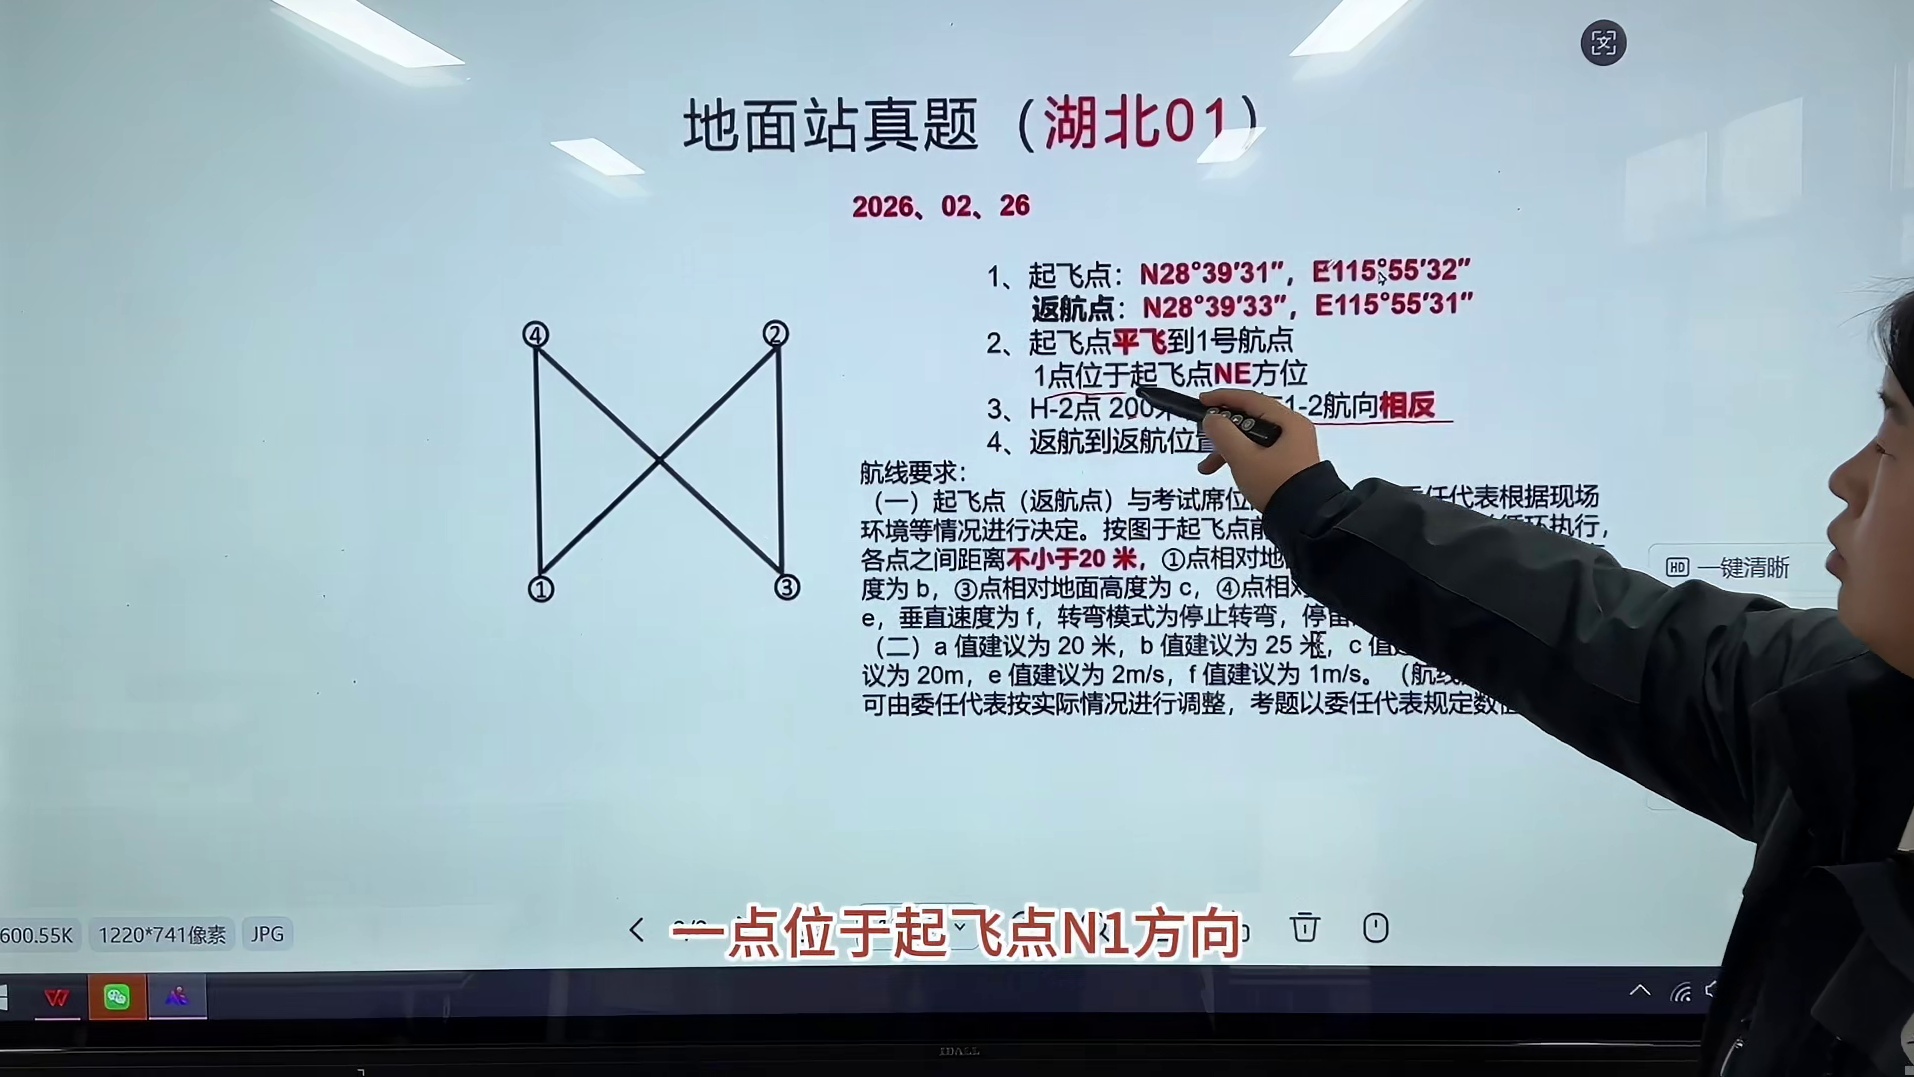 地面站真题（湖北01）
2026、02、26
1、起飞点：N28°39′31″，E115°55′32″
返航点：N28°39′33″，E115°55′31″
2、起飞点平飞到1号航点
1点位于起飞点NE方位
3、H-2点 200米 1-2航向相反
4、返航到返航位置
航线要求：
（一）起飞点（返航点）与考试席位 委任代表根据现场
环境等情况进行决定。按图于起飞点前 循环执行，
各点之间距离不小于20 米，①点相对地面
度为 b，③点相对地面高度为 c，④点相对
e，垂直速度为 f，转弯模式为停止转弯，停留
（二）a 值建议为 20 米，b 值建议为 25 米，c 值
议为 20m，e 值建议为 2m/s，f 值建议为 1m/s。（航线
可由委任代表按实际情况进行调整，考题以委任代表规定数值
④
②
①
③
HD 一键清晰
600.55K
1220*741像素
JPG
一点位于起飞点N1方向